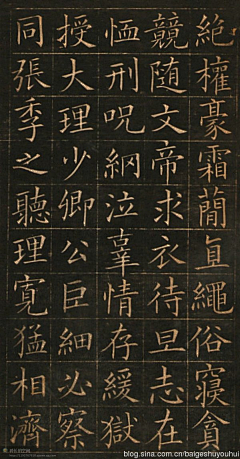 絶權豪霜簡直繩俗寢貪
競随文帝求衣待旦志在
恤刑呪網泣辜情存緩獄
授大理少卿公巨細必察
同張季之聽理寬猛相濟
blog.sina.com.cn/baigeshuyouhui